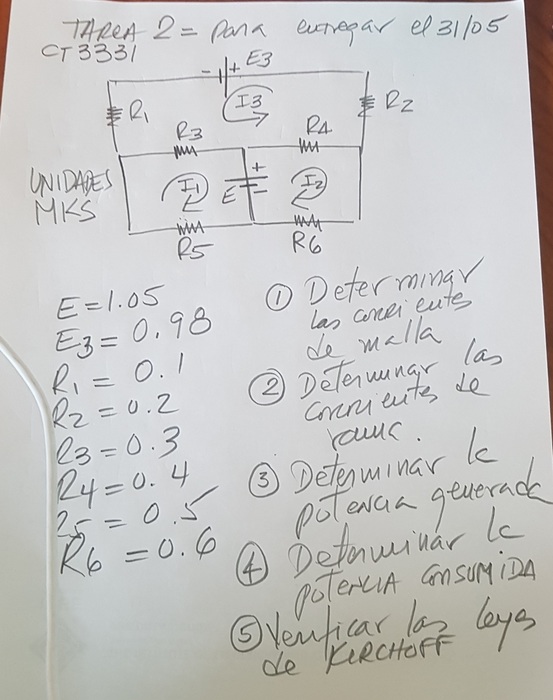 TAREA 2 = para entregar el 31/05
CT3331
- + E3
R1
I3
R2
R3
R4
UNIDADES
MKS
I1
E
+
-
I2
R5
R6
E = 1.05
E3 = 0.98
R1 = 0.1
R2 = 0.2
R3 = 0.3
R4 = 0.4
R5 = 0.5
R6 = 0.6
① Determinar
las corrientes
de malla
② Determinar las
corrientes de
rama.
③ Determinar la
potencia generada
④ Determinar la
potencia consumida
⑤ Verificar las leyes
de KIRCHOFF